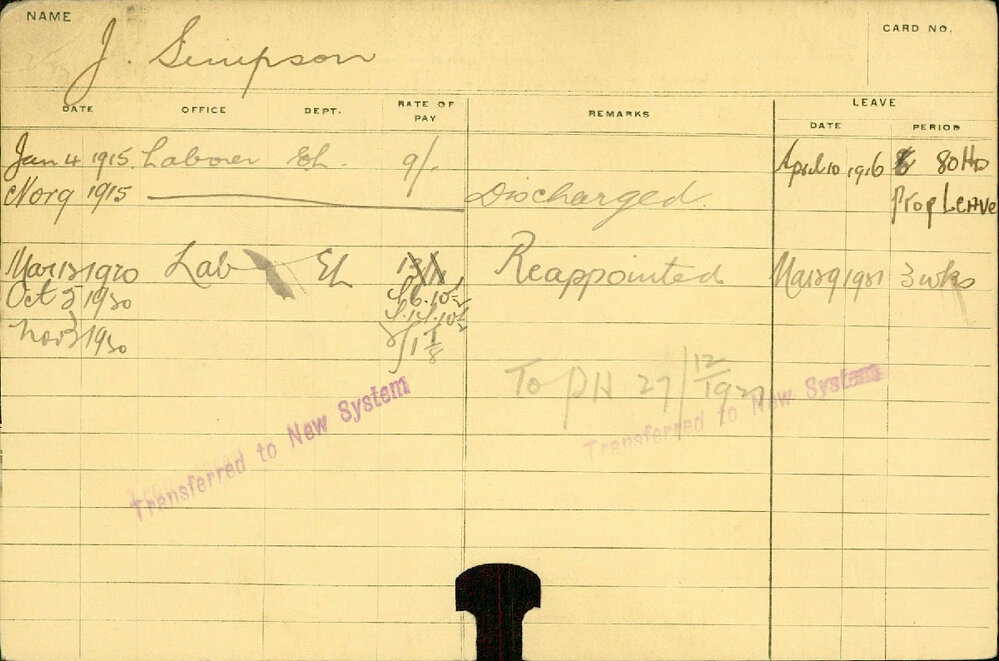 NAME
J. Simpson
CARD NO.
DATE OFFICE DEPT. RATE OF PAY REMARKS LEAVE
DATE PERIOD
Jan 4 1915 Laborer EL. 9/- April 10 1916 80 Hrs
Nov 9 1915 Discharged. Prop Leave
Mar 13 1920 Lab EL 13/11 Reappointed Mar 29 1921 3 wks
Oct 5 1920
Nov 3 1920
To PH 27/12/1927
Transferred to New System
Transferred to New System